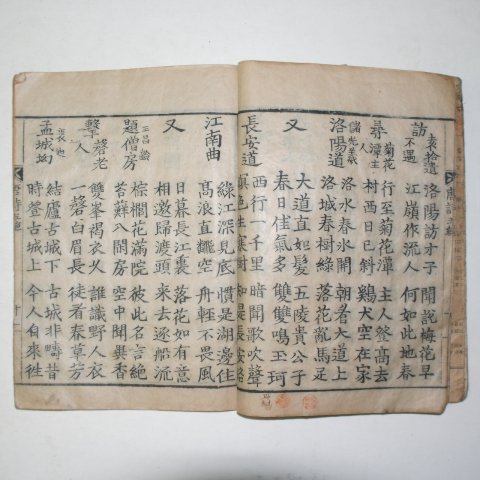 訪袁拾遺不遇
洛陽訪才子 江嶺作流人
聞說梅花早 何如此地春
尋菊花潭主人
行至菊花潭 村西日已斜
主人登高去 雞犬空在家
洛陽道 儲光羲
洛水春冰開 洛城春樹綠
朝看大道上 落花亂馬足
又
大道直如髮 春日佳氣多
五陵貴公子 雙雙鳴玉珂
長安道
西行一千里 暝色生寒樹
暗聞歌吹聲 知是長安路
江南曲
綠江深見底 高浪直翻空
慣是湖邊住 舟輕不畏風
又
日暮長江裏 相邀歸渡頭
落花如有意 來去逐船流
題僧房 王昌齡
棕櫚花滿院 苔蘚入閒房
彼此名言絕 空中聞異香
擊磬老人
雙峯褐衣火 一磬白眉長
誰識野人衣 徒看春草芳
孟城坳 裴迪
結廬古城下 時登古城上
古城非疇昔 今人自來往